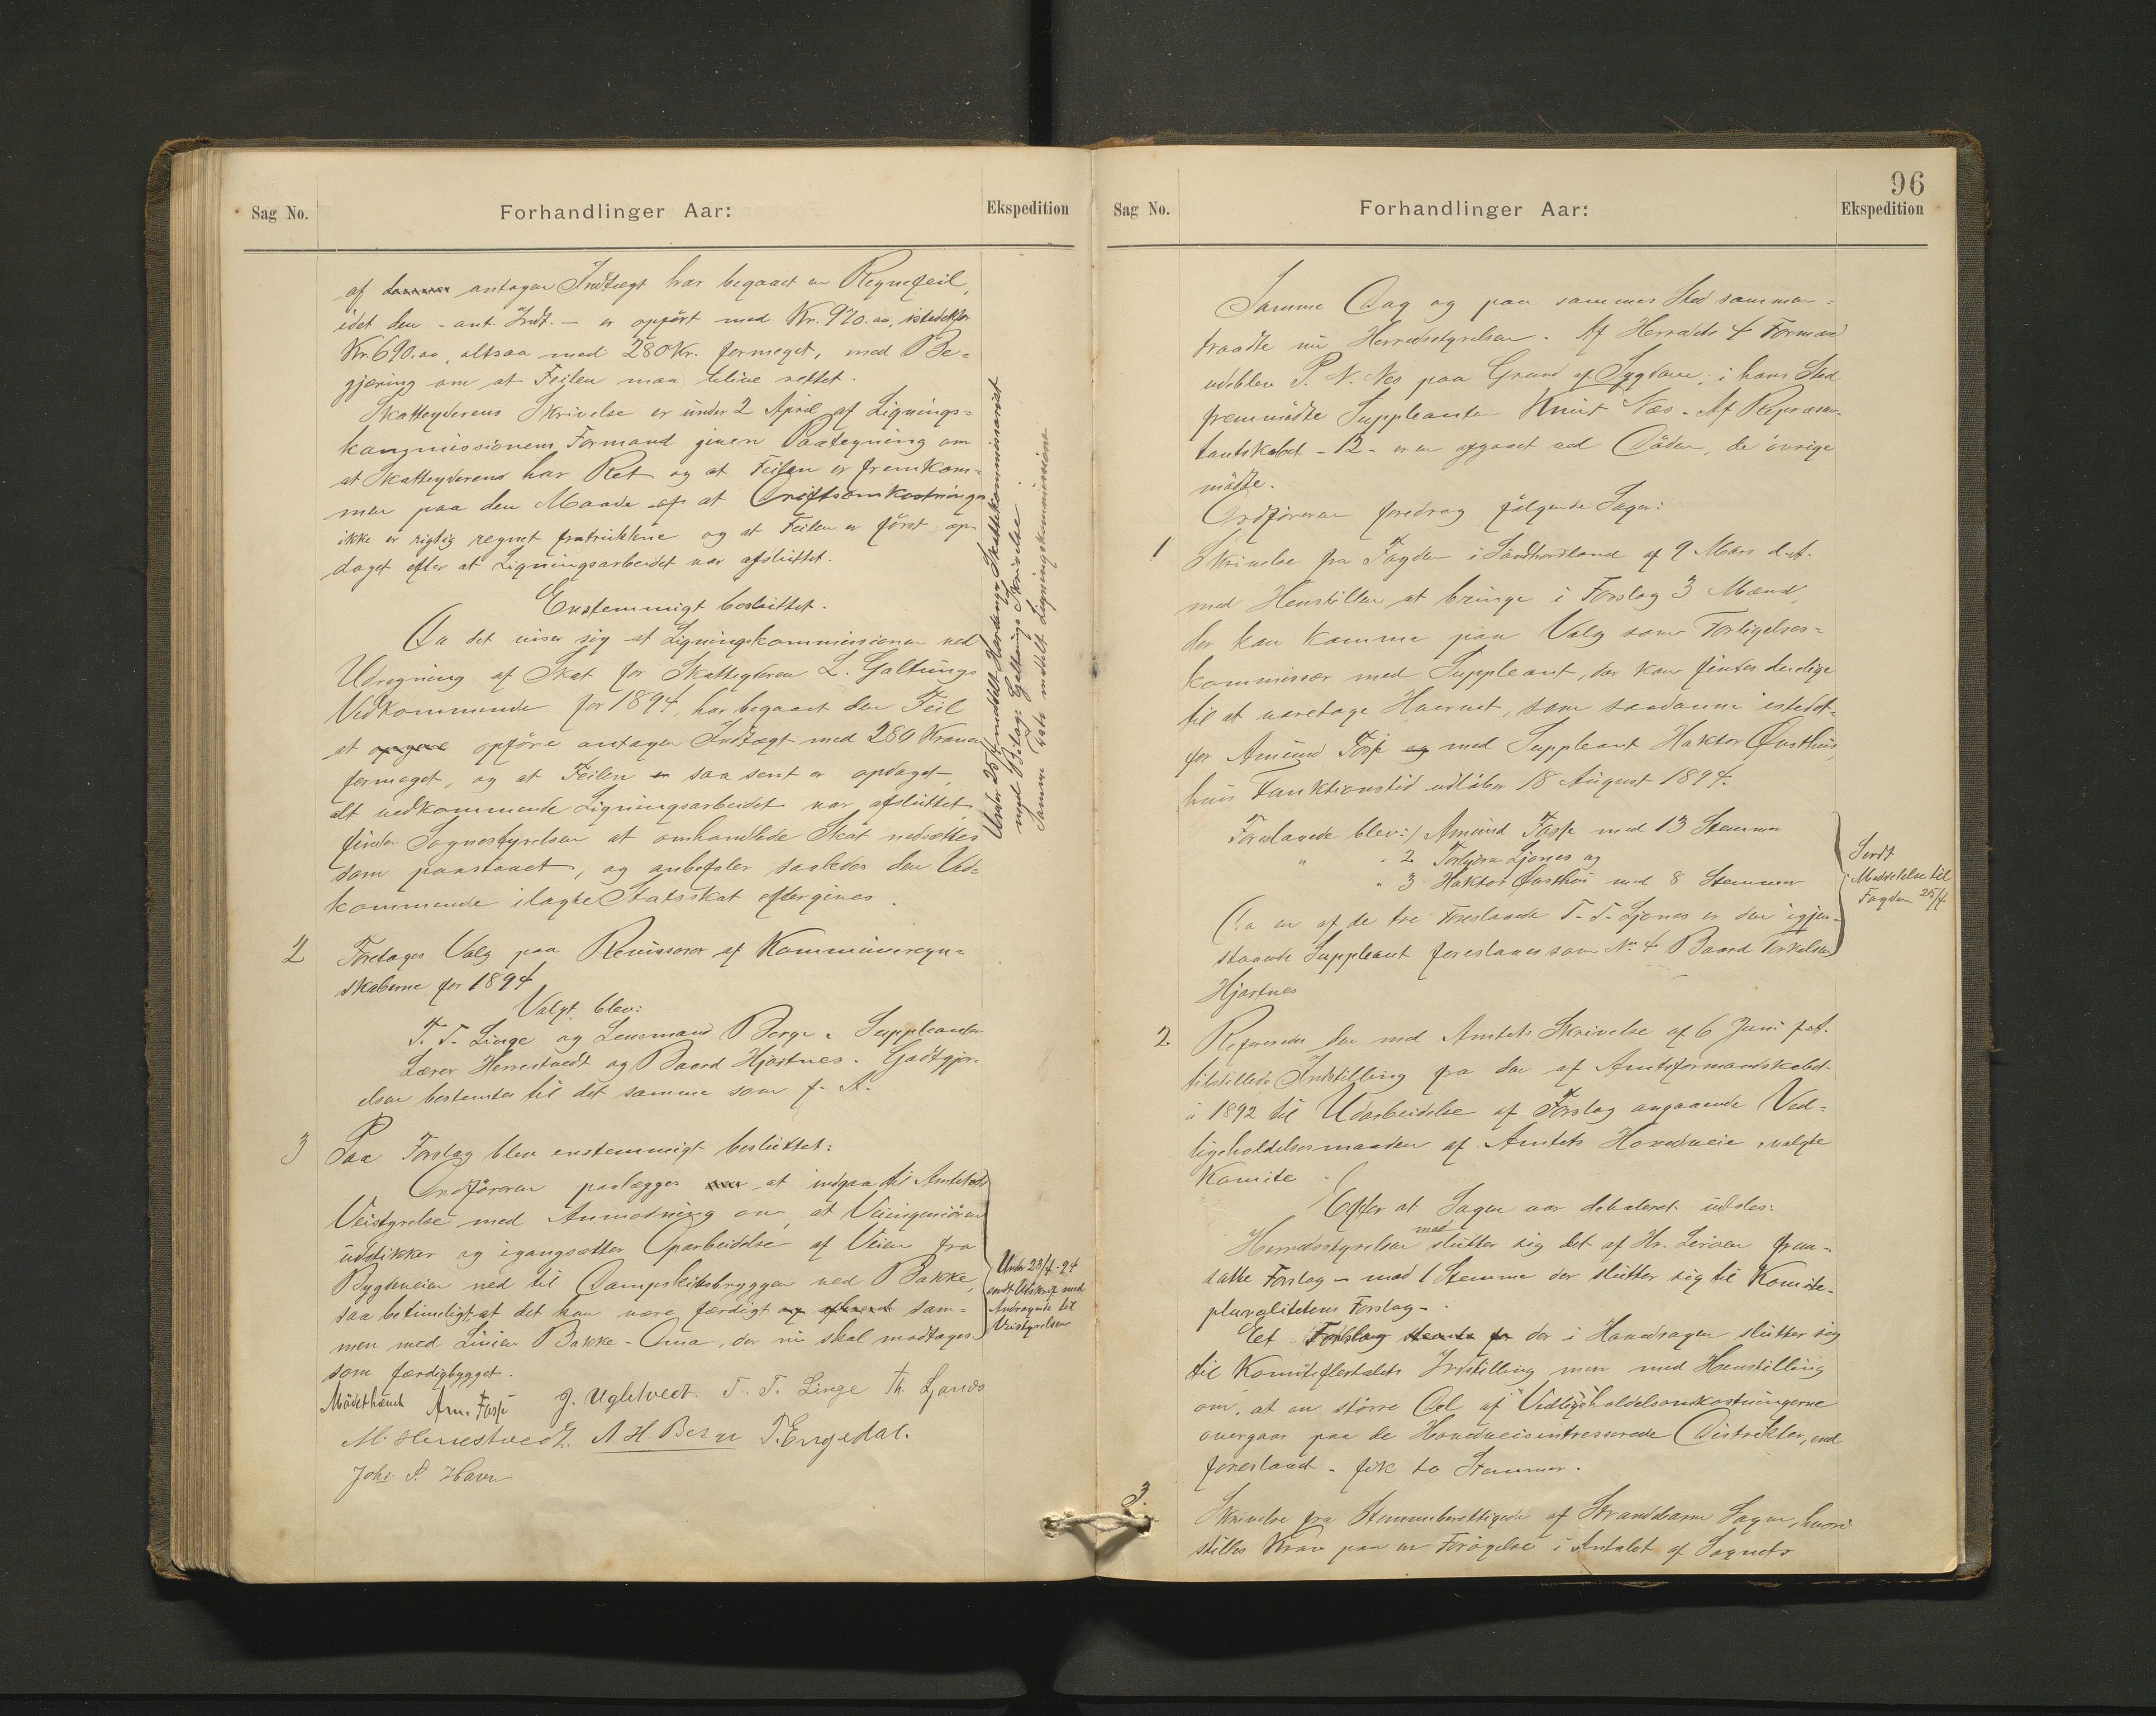 Sag No.
Forhandlinger Aar:
Ekspedition
af antagen Indtægt har begaaet en Regnefeil,
idet den - ant. Indt. - er opført med Kr. 970.00, istedetfor
Kr. 690.00, altsaa med 280 Kr. formeget, med Be=
gjæring om at Feilen maa blive rettet.
Skatteyderens Skrivelse er under 2 April af Lignings=
kommissionens Formand given Paategning om
at Skatteyderens har Ret og at Feilen er fremkom=
men paa den Maade at Driftsomkostninger
ikke er rigtig regnet fratrukkene og at Feilen er først op=
daget efter at Ligningsarbeidet var afsluttet.
Enstemmigt besluttet.
Da det viser sig at Ligningskommissionen ved
Udregning af Skat for Skatteyderen L. Galtungs
Vedkommende for 1894, har begaaet den Feil
at opgave opføre antagen Indtægt med 280 Kroner
formeget, og at Feilen er saa sent er opdaget,
alt vedkommende Ligningsarbeidet var afsluttet
finder Sognestyrelsen at omhandlede Skat nedsættes
som paastaaet, og anbefaler saaledes den Ved=
kommende ilagte Statsskat eftergives.
Under 25/4 meddelt Hardanger Skattekommissariat
med Bilag: Galtungs Skrivelse.
Samme Dato meddelt Ligningskommissionen
2 Foretages Valg paa Revisorer af Kommuneregn=
skaberne for 1894
Valgt blev:
T. T. Linge og Lensmand Berge. Suppleanter
Lærer Hennestvedt og Baard Hjartnes. Godtgjør=
elsen bestemtes til det samme som f. A.
3 Paa Forslag blev enstemmigt besluttet:
Ordføreren paalægges at indgaa til Amtets
Veistyrelse med Anmodning om, at Veiingeniøren
udstikker og igangsætter Oparbeidelse af Veien fra
Bygdeveien ned til Dampskibsbryggen ved Bakke,
saa betimeligt at det kan være færdigt og sam=
men med Linien Bakke - Oma, der nu skal modtages
som færdigbygget.
Under 25/4-94
sendt Udskrift med
Andragende til
Veistyrelsen
Am. Fosse J. Ugletvedt T. T. Linge Th. Ljones
M. Hennestvedt. A H Berge T. Engedal.
Johs. P. Haven
96
Sag No.
Forhandlinger Aar:
Ekspedition
Samme Dag og paa sammes Sted sammen=
traadte nu Herredsstyrelsen. Af Herredets 4 Formænd
udeblev P. N. Nes paa Grund af Sygdom; i hans Sted
fremmødte Suppleanten Knut Næs. Af Repræsen=
tantskabet - 12 - er en afgaaet ved Døden, de øvrige
mødte.
Ordføreren foredrog følgende Sager:
1 Skrivelse fra Fogden i Søndhordland af 9 Mars d. A.
med Henstillen at bringe i Forslag 3 Mænd,
der kan komme paa Valg som Forligelses=
kommissær med Suppleant, der kan findes duelige
til at varetage Hvervet, som saadanne istedet=
for Amund Fosse og med Suppleant Haktor Øvsthus,
hvis Funktionstid udløber 18 August 1894.
Foreslaaede blev: 1 Amund Fosse med 13 Stemmer
" " 2 Torbjørn Ljones og
" 3 Haktor Øvsthus med 8 Stemmer
Da en af de tre Foreslaaede T. T. Ljones er den igjen=
staaende Suppleant foreslaaes som No 4 Baard Torkelsen
Hjartnes
Sendt
Meddelelse til
Fogden 25/4
2 Refereredes den med Amtets Skrivelse af 6 Juni f. A.
tilstillede Indstilling fra den af Amtsformandskabet
i 1892 til Udarbeidelse af Forslag angaaende Ved=
ligeholdelsesmaaden af Amtets Hovedveie valgte
Komite.
Efter at Sagen var debateret udtaltes:
Herredsstyrelsen slutter sig det af Hr. Lerøen frem=
satte Forslag - mod 1 Stemme der slutter sig til Komite-
pluralitetens Forslag -.
Eet Forslag stemte for der i Hovedsagen slutter sig
til Komiteflertalets Indstilling men med Henstilling
om, at en større Del af Vedligeholdelsomkostningerne
overgaar paa de Hovedveisintresserede Distrikter, end
foreslaaet. fik to Stemmer.
3. Skrivelse fra Stemmeberettigede af Strandebarm Sogn, hvori
stilles Krav paa en Forøgelse i Antalet af Sognets